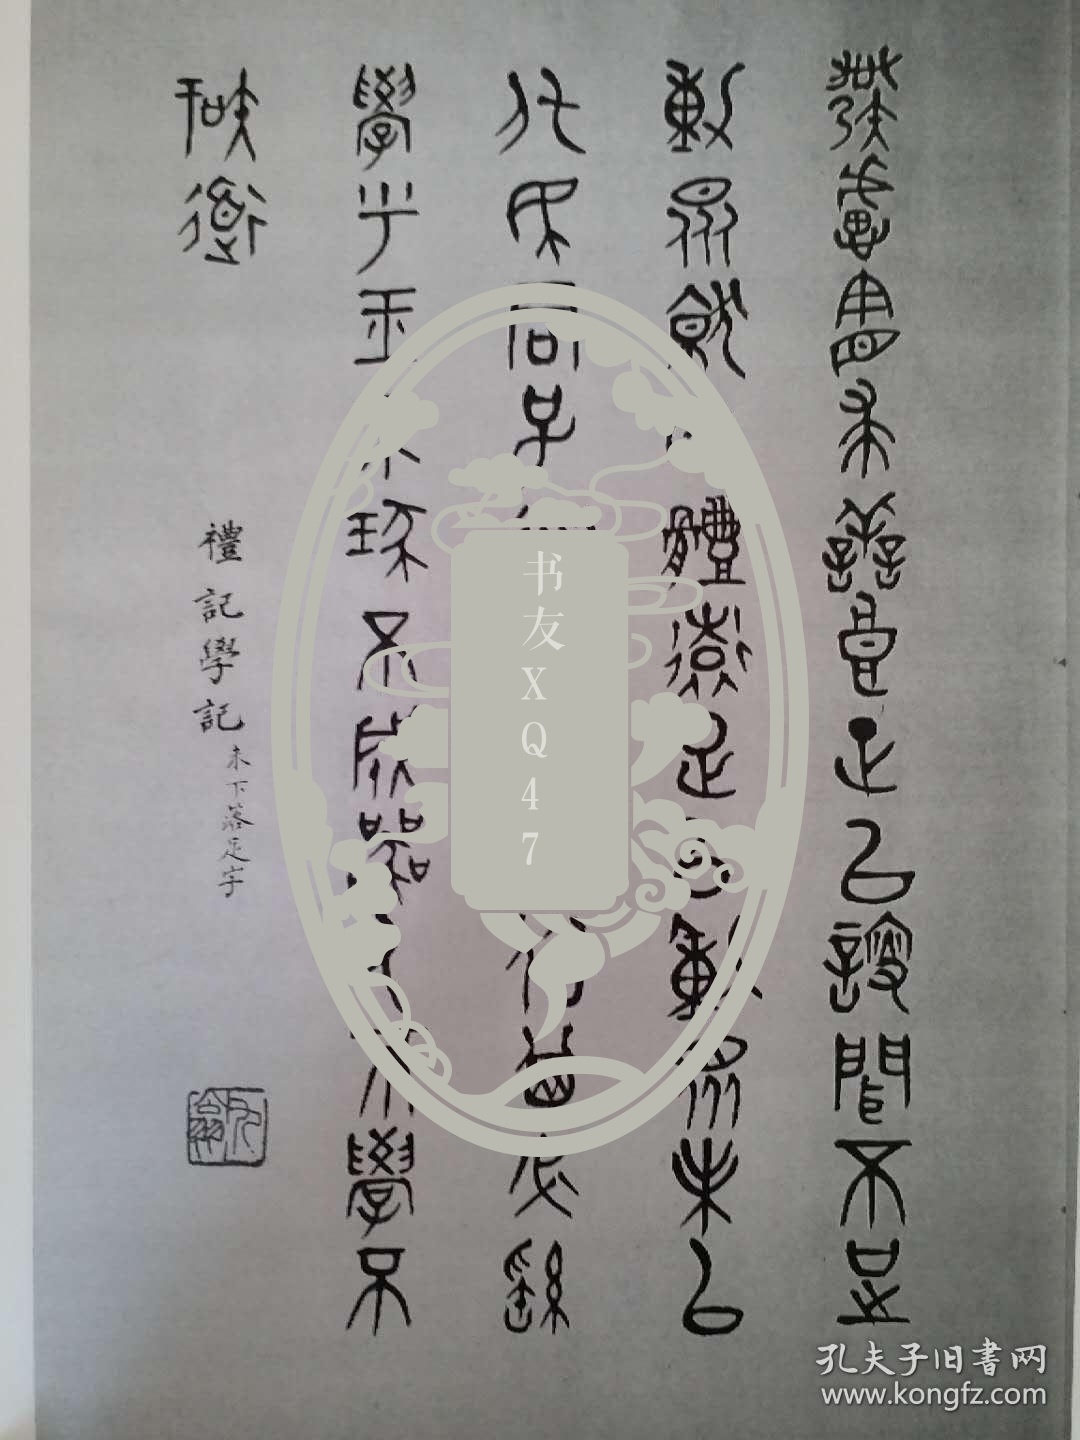 發慮憲求善良足以謏聞不足
動眾就體遠足以動眾未以
化民君子俗其必繇
學乎玉不琢不成器人不學不
知道
禮記學記
未下落足字
书友XQ47
孔夫子旧書网
www.kongfz.com